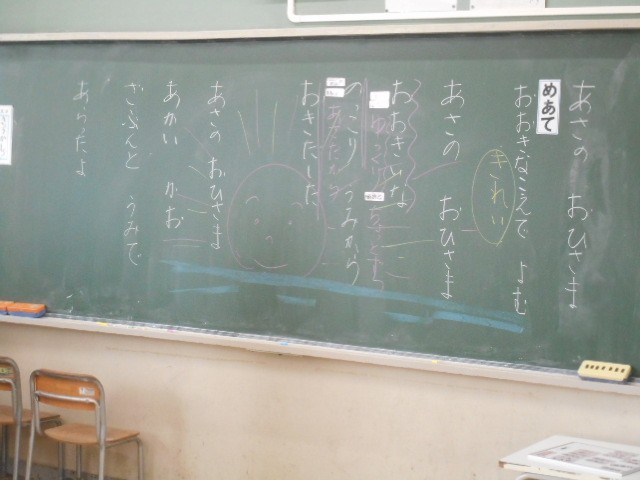 あさの おひさま
めあて
おおきなこえで よむ
きれい
あさの おひさま
おおきな
のっこり うみから
おきだした
あさの おひさま
あかい かお
ざぶんと うみで
あらったよ